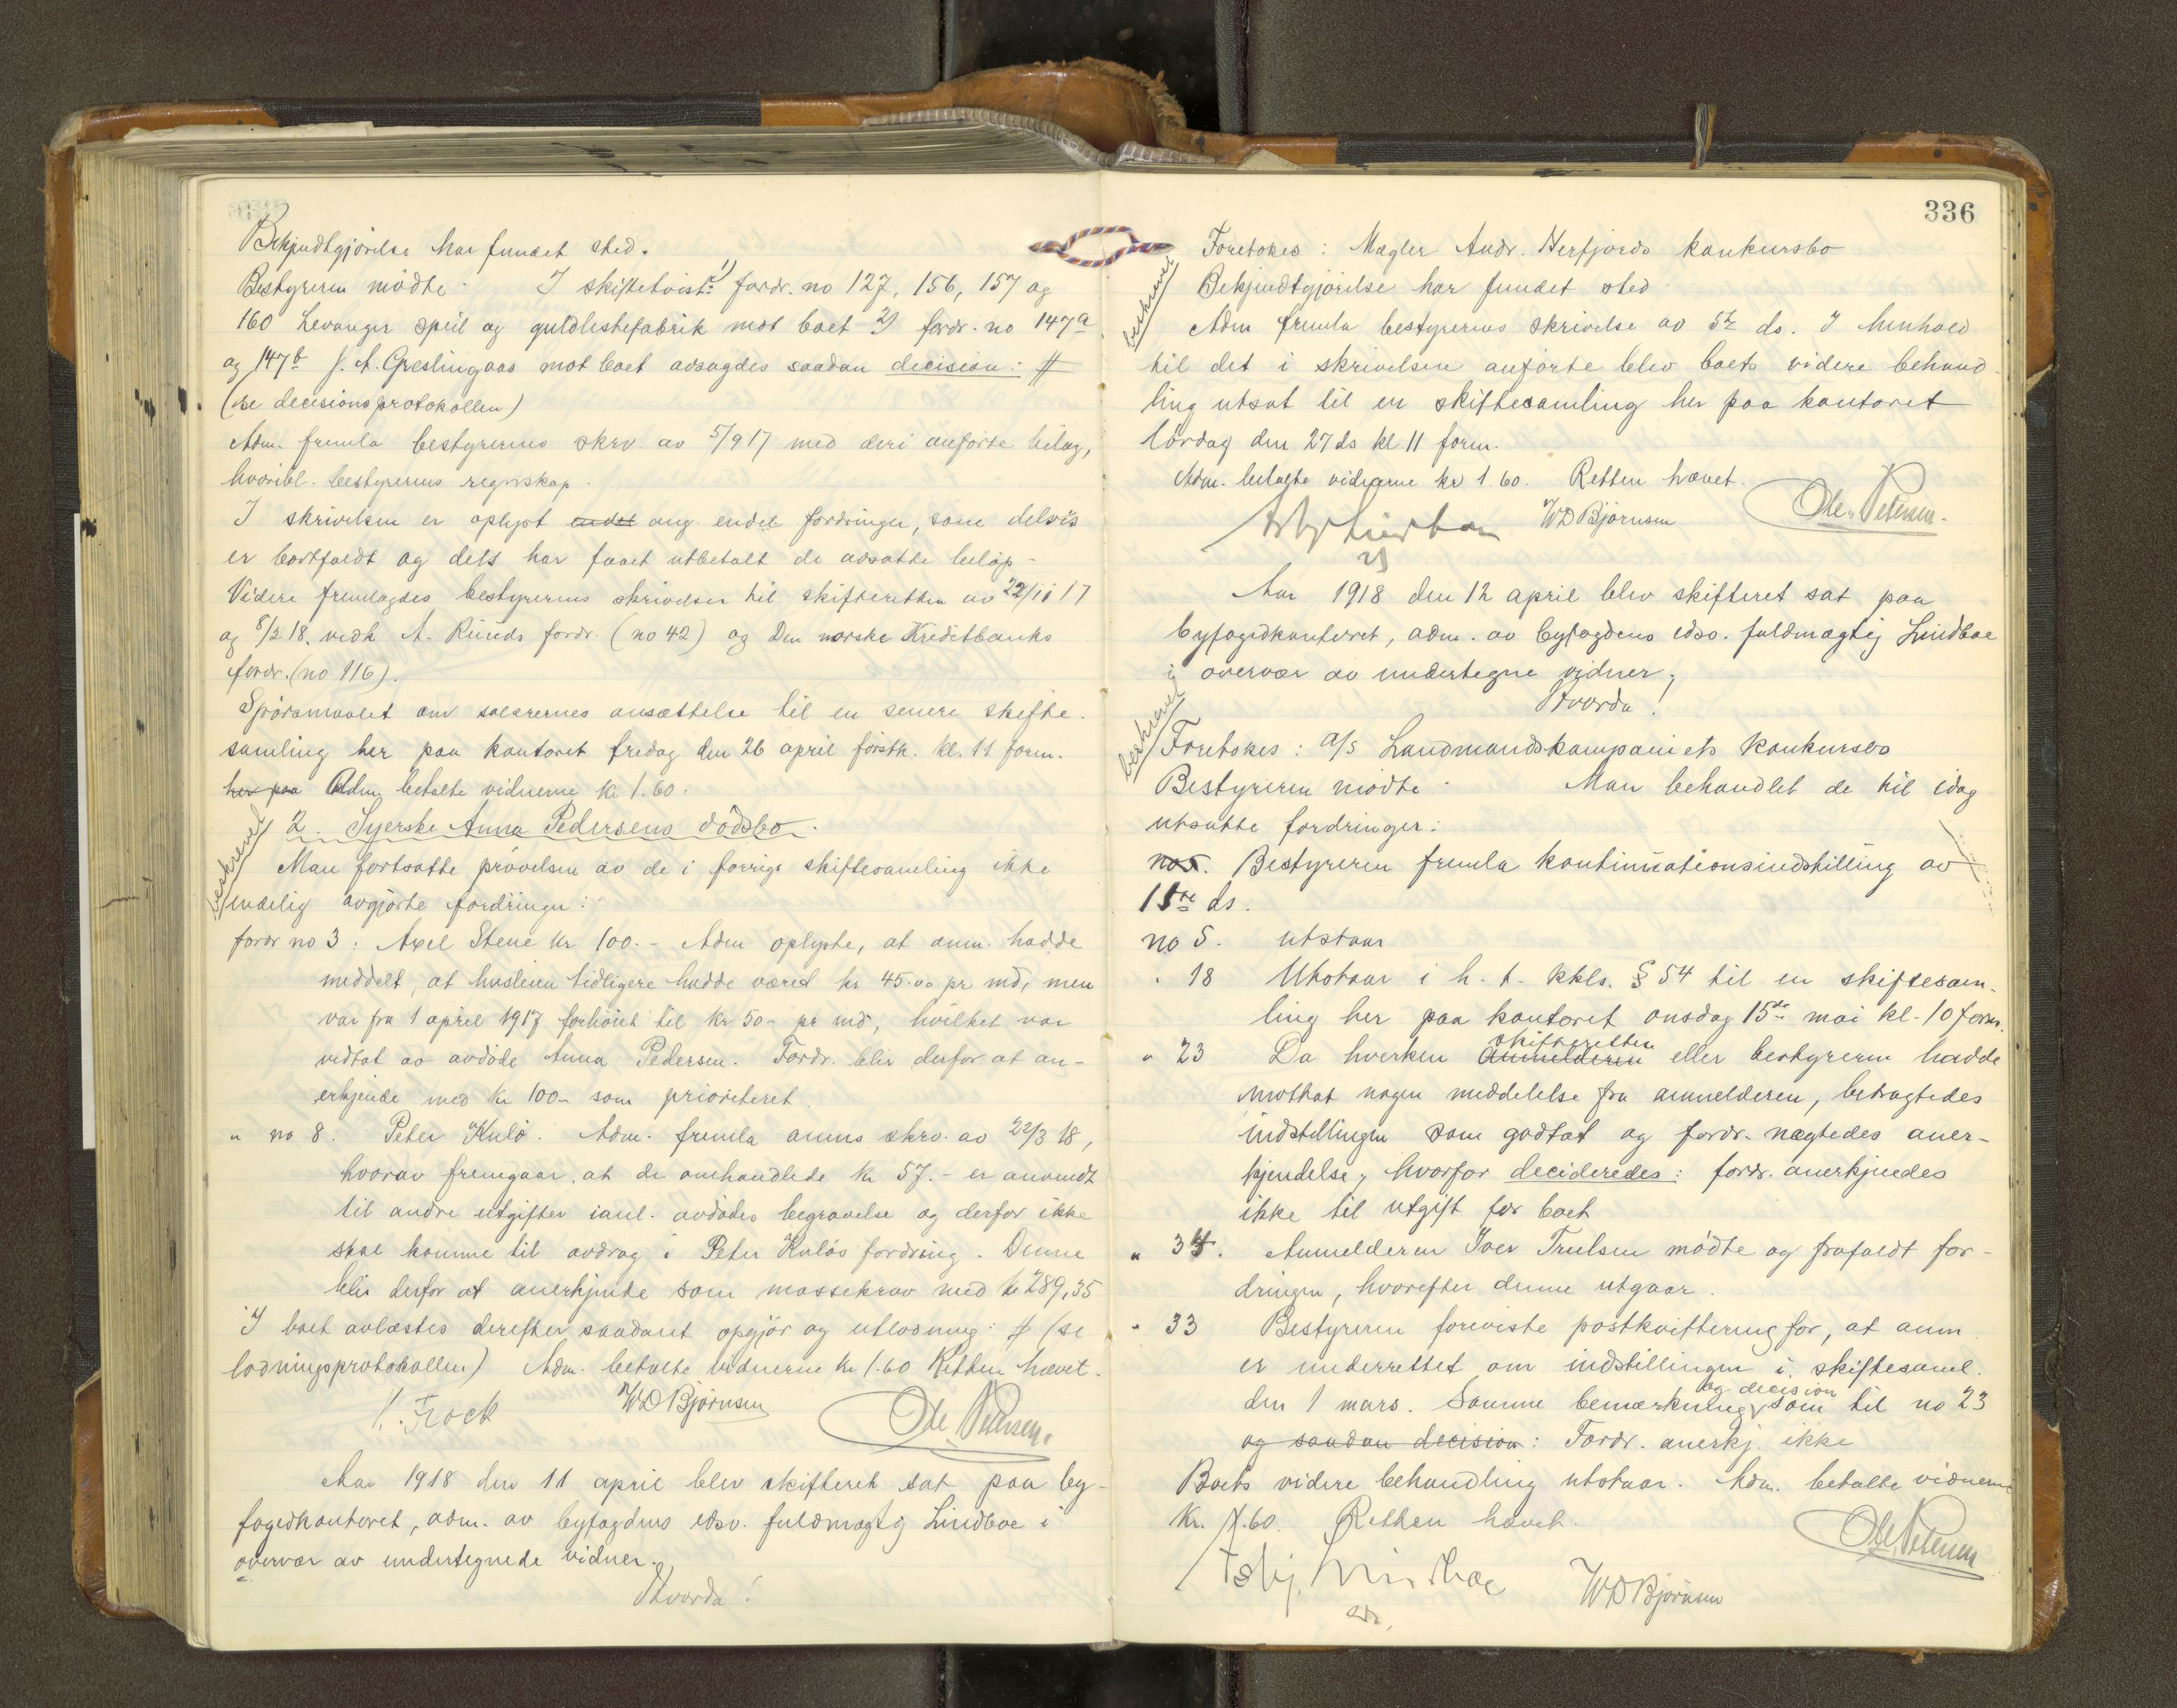 Bekjendtgjörelse har fundet sted.
Bestyreren mödte. I skiftetvist: 1) fordr. no 127, 156, 157 og
160 Levanger speil og guldlistefabrik mot boet 2) fordr. no 147a
og 147b J. A. Greslingaas mot boet avsagdes saadan decision: #
(se decisionsprotokollen)
Adm. fremla bestyrerens skrv. av 5/9 17 med deri anförte bilag,
hvoribl. bestyrerens regnskap.
I skrivelsen er oplyst endel ang. endel fordringer, som delvis
er bortfaldt og dels har faaet utbetalt de avsatte belöp.
Videre fremlagdes bestyrerens skrivelser til skifteretten av 22/11 17
og 8/2 18. vedk. A. Ruuds fordr. (no 42) og Den norske Kreditbanks
fordr. (no 116).
Spörsmaalet om salærernes ansættelse til en senere skifte-
samling her paa kontoret fredag den 26 april förstk. kl. 11 form.
her paa Adm. betalte vidnerne kr 1.60.
beskrevet
2. Syerske Anna Pedersens dödsbo.
Man fortsatte prövelsen av de i forrige skiftesamling ikke
endelig avgjörte fordringer:
fordr no 3: Axel Stene kr 100.- Adm oplyste, at anm. hadde
meddelt, at husleien tidligere hadde været kr 45.00 pr md, men
var fra 1 april 1917 forhöiet til kr 50- pr md, hvilket var
vedtat av avdöde Anna Pedersen. Fordr. blir derfor at an-
erkjende med kr 100- som prioriteret.
" no 8. Peter Kulö. Adm. fremla anms skrv. av 22/3 18,
hvorav fremgaar, at de omhandlede kr 57.- er anvendt
til andre utgifter ianl. avdödes begravelse og derfor ikke
skal komme til avdrag i Peter Kulös fordring. Denne
blir derfor at anerkjende som massekrav med kr 289,35
I boet avlæstes derefter saadant opgjör og utlodning: # (se
lodningsprotokollen) Adm. betalte vidnerne kr 1.60 Retten hævet.
Frock WD Björnsen Ole Petersen.
Aar 1918 den 11 april blev skifteret sat paa by-
fogedkontoret, adm. av byfogdens edsv. fuldmægtig Lindboe i
overvær av undertegnede vidner.
Hvorda!
336
Foretokes: Mægler Andr. Herfjords konkursbo
beskrevet
Bekjendtgjörelse har fundet sted
Adm fremla bestyrerens skrivelse av 5te ds. I henhold
til det i skrivelsen anförte blev boets videre behand-
ling utsat til en skiftesamling her paa kontoret
lördag den 27 ds kl. 11 form.
Adm. betalte vidnerne kr 1.60. Retten hævet.
Asbj Lindboe WD Björnsen Ole Petersen.
Aar 1918 den 12 april blev skifteret sat paa
byfogedkontoret, adm. av byfogdens edsv. fuldmægtig Lindboe
i overvær av undertegne vidner;
Hvorda!
beskrevet
Foretokes: A/S Landmandskompaniets konkursbo
Bestyreren mödte. Man behandlet de til idag
utsatte fordringer:
no 5. Bestyreren fremla kontinuationsindstilling av
11te ds.
no 5. utstaar
" 18 Utstaar i h. t. kkls. § 54 til en skiftesam-
ling her paa kontoret onsdag 15de mai kl. 10 form.
skifteretten
" 23 Da hverken Anmelderen eller bestyreren hadde
mottat nogen meddelelse fra anmelderen, betragtedes
indstillingen som godtat og fordr. nægtedes aner-
kjendelse, hvorfor decideredes: fordr. anerkjendes
ikke til utgift for boet
" 34. Anmelderen Iver Trulsen mödte og frafaldt for-
dringen, hvorefter denne utgaar.
" 33 Bestyreren foreviste postkvittering for, at anm
er underrettet om indstillingen i skiftesaml.
og decision
den 1 mars. Samme bemærkning som til no 23
og saadan decision: Fordr. anerkj. ikke
Boets videre behandling utstaar. Adm. betalte vidnerne
kr. 1.60. Retten hævet.
Asbj. Lindboe WD Björnsen Ole Petersen